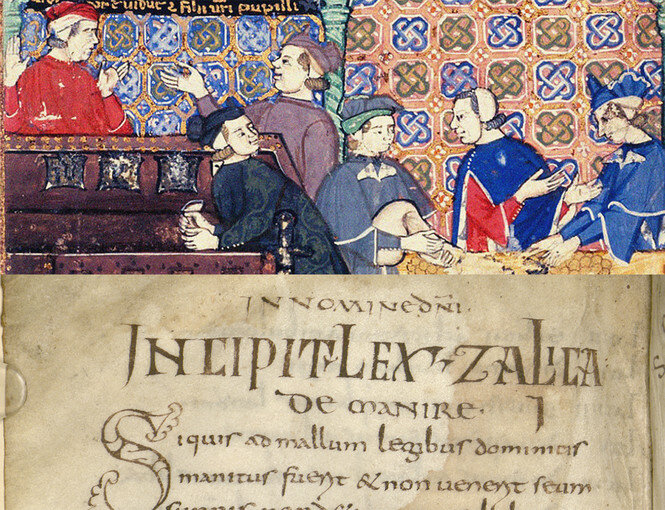 pupilli
IN NOMINE DNI.
INCIPIT LEX ZALICA
DE MANIRE. I
Siquis ad mallum legibus dominicis
manitus fuerit & non uenerit seum